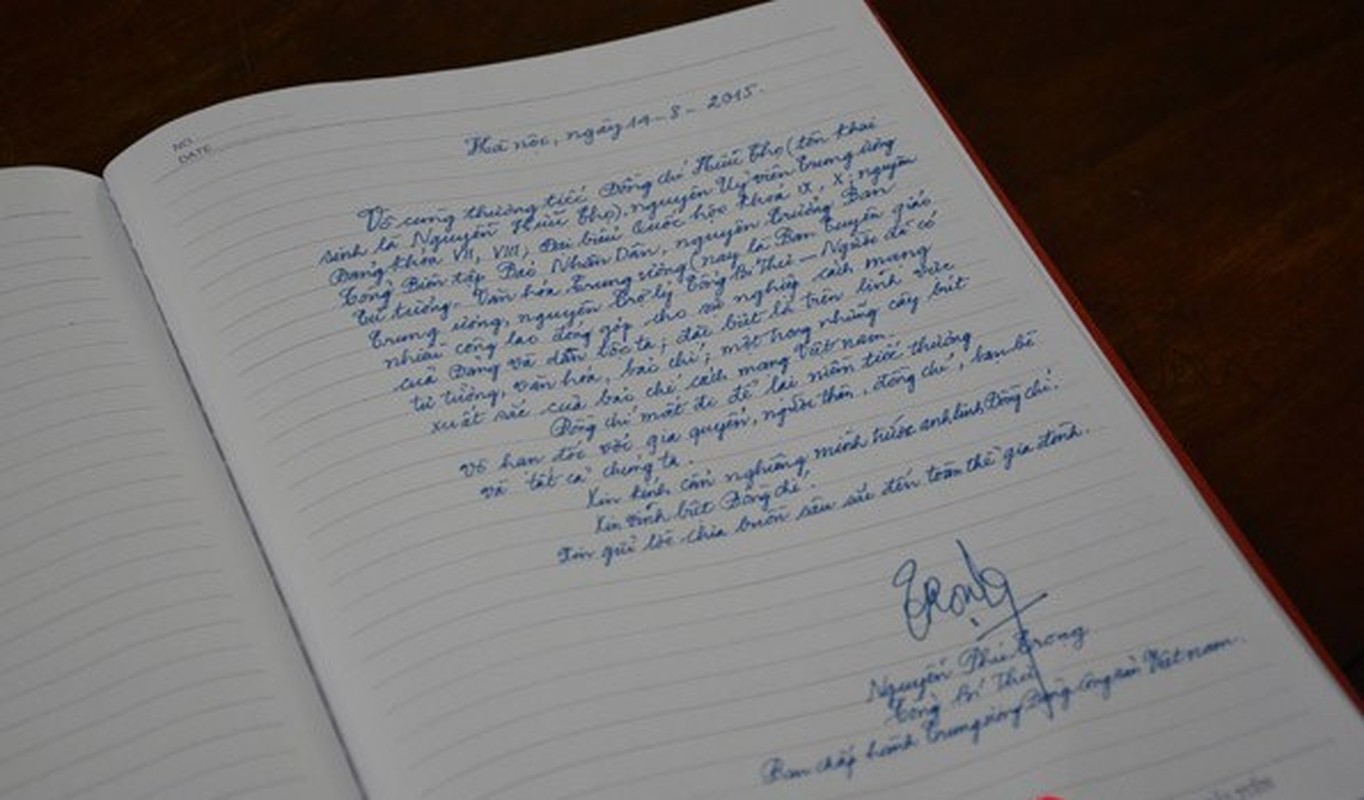 NO.
DATE
Hà nội, ngày 14-8-2015.
Vô cùng thương tiếc Đồng chí Hữu Thọ (tên khai
sinh là Nguyễn Hữu Thọ), nguyên Uỷ viên Trung ương
Đảng khóa VII, VIII; Đại biểu Quốc hội khoá IX, X; nguyên
Tổng Biên tập Báo Nhân Dân, nguyên Trưởng Ban
Tư tưởng - Văn hóa Trung ương (nay là Ban Tuyên giáo
Trung ương, nguyên Trợ lý Tổng Bí Thư — Người đã có
nhiều công lao đóng góp cho sự nghiệp cách mạng
của Đảng và dân tộc ta; đặc biệt là trên lĩnh vực
tư tưởng, văn hóa, báo chí; một trong những cây bút
xuất sắc của báo chí cách mạng Việt nam.
Đồng chí mất đi để lại niềm tiếc thương
vô hạn đối với gia quyến, người thân, đồng chí, bạn bè
và tất cả chúng ta.
Xin kính cẩn nghiêng mình trước anh linh Đồng chí.
Xin vĩnh biệt Đồng chí.
Xin gửi lời chia buồn sâu sắc đến toàn thể gia đình.
Trọng
Nguyễn Phú Trọng
Tổng Bí Thư
Ban chấp hành Trung ương Đảng Cộng sản Việt nam.